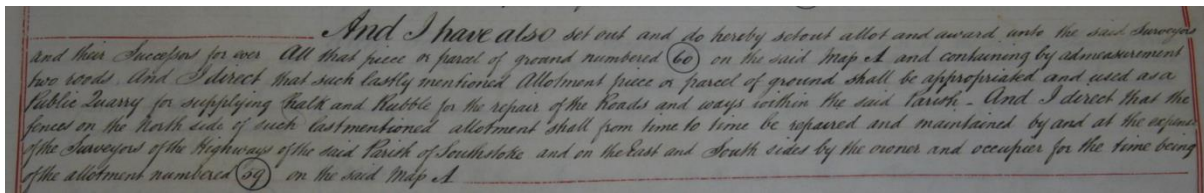 And I have also set out and do hereby set out allot and award unto the said Surveyors
and their Successors for ever All that piece or parcel of ground numbered 60 on the said Map A and containing by admeasurement
two roods. And I direct that such lastly mentioned Allotment piece or parcel of ground shall be appropriated and used as a
Public Quarry for supplying Chalk and Rubble for the repair of the Roads and ways within the said Parish – And I direct that the
fences on the North side of such lastmentioned allotment shall from time to time be repaired and maintained by and at the expense
of the Surveyors of the Highways of the said Parish of Southstoke and on the East and South sides by the owner and occupier for the time being
of the allotment numbered 59 on the said Map A